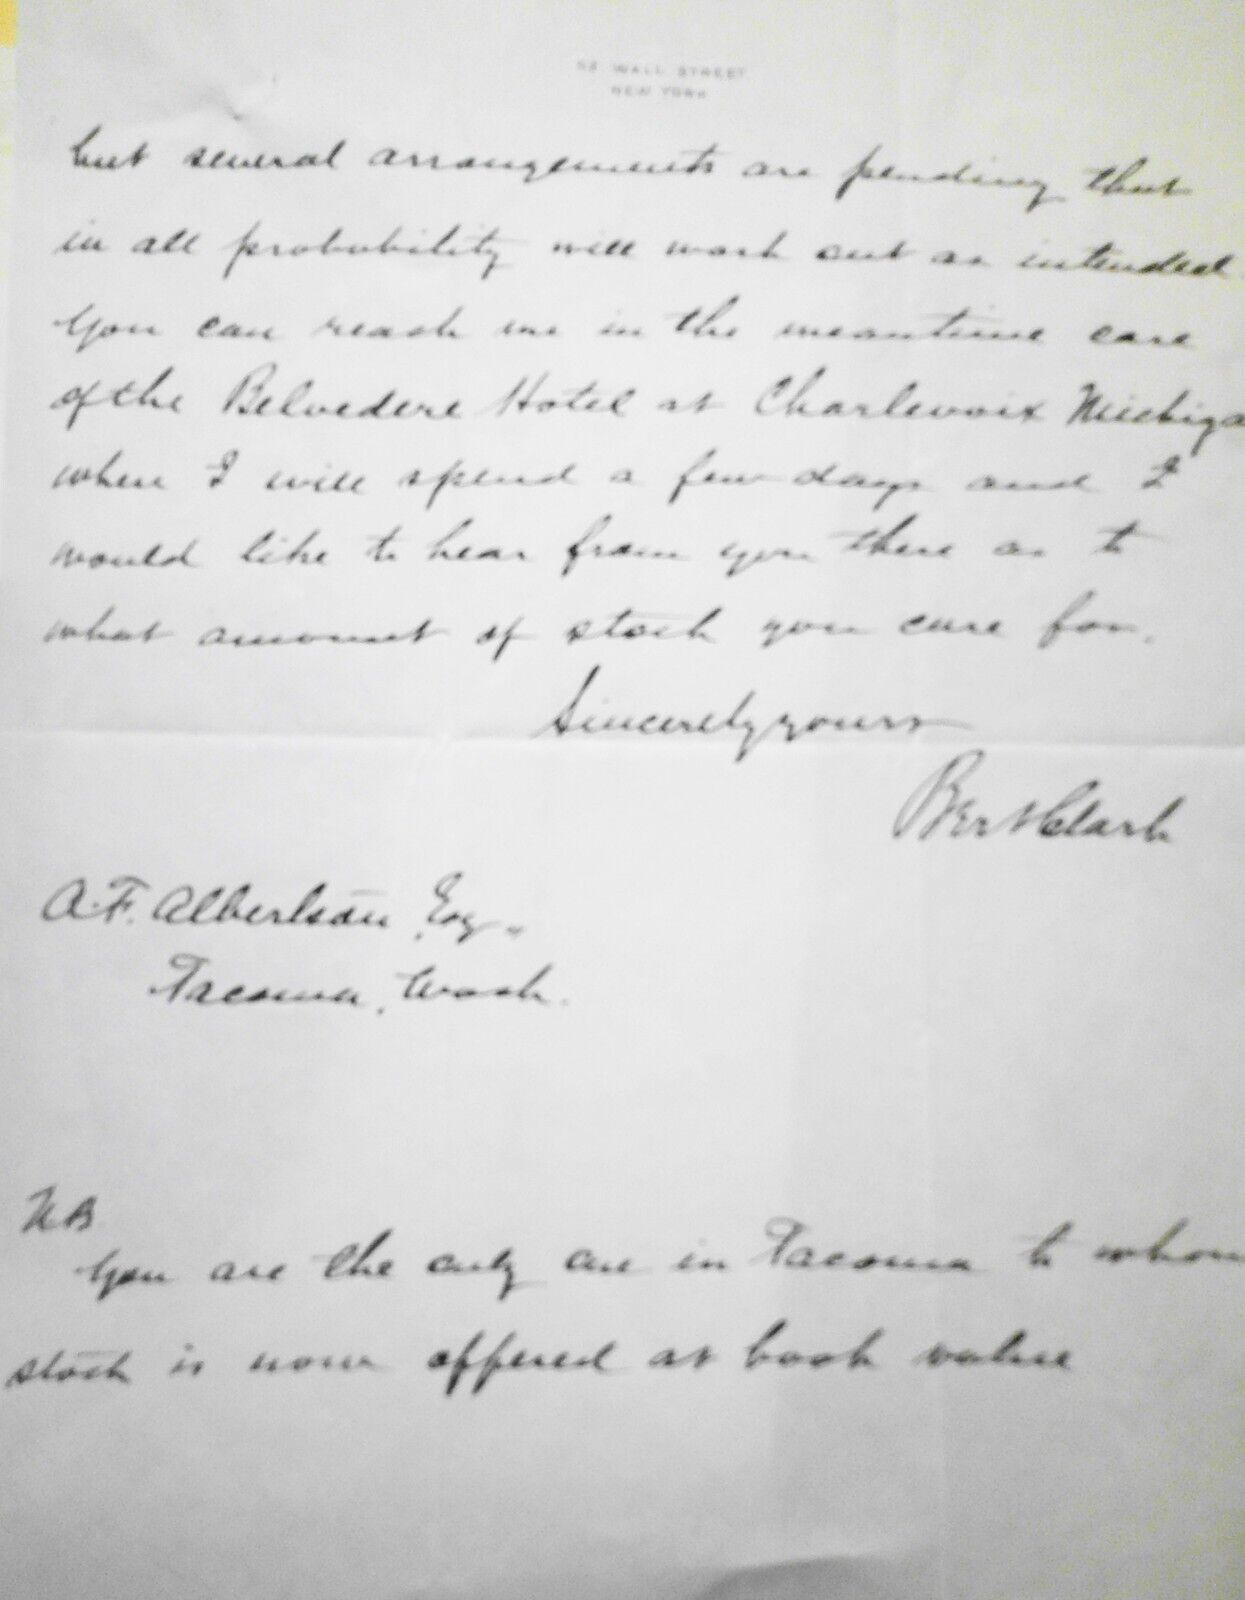 52 WALL STREET
NEW YORK
but several arrangements are pending that
in all probability will work out as intended
You can reach me in the meantime care
of the Belvedere Hotel at Charlevoix Michiga
where I will spend a few days and I
would like to hear from you there as to
what amount of stock you care for.
Sincerely yours
Bert Clark
A.F. Albertson, Esq.,
Tacoma, Wash.
N B
You are the only one in Tacoma to whom
stock is now offered at book value